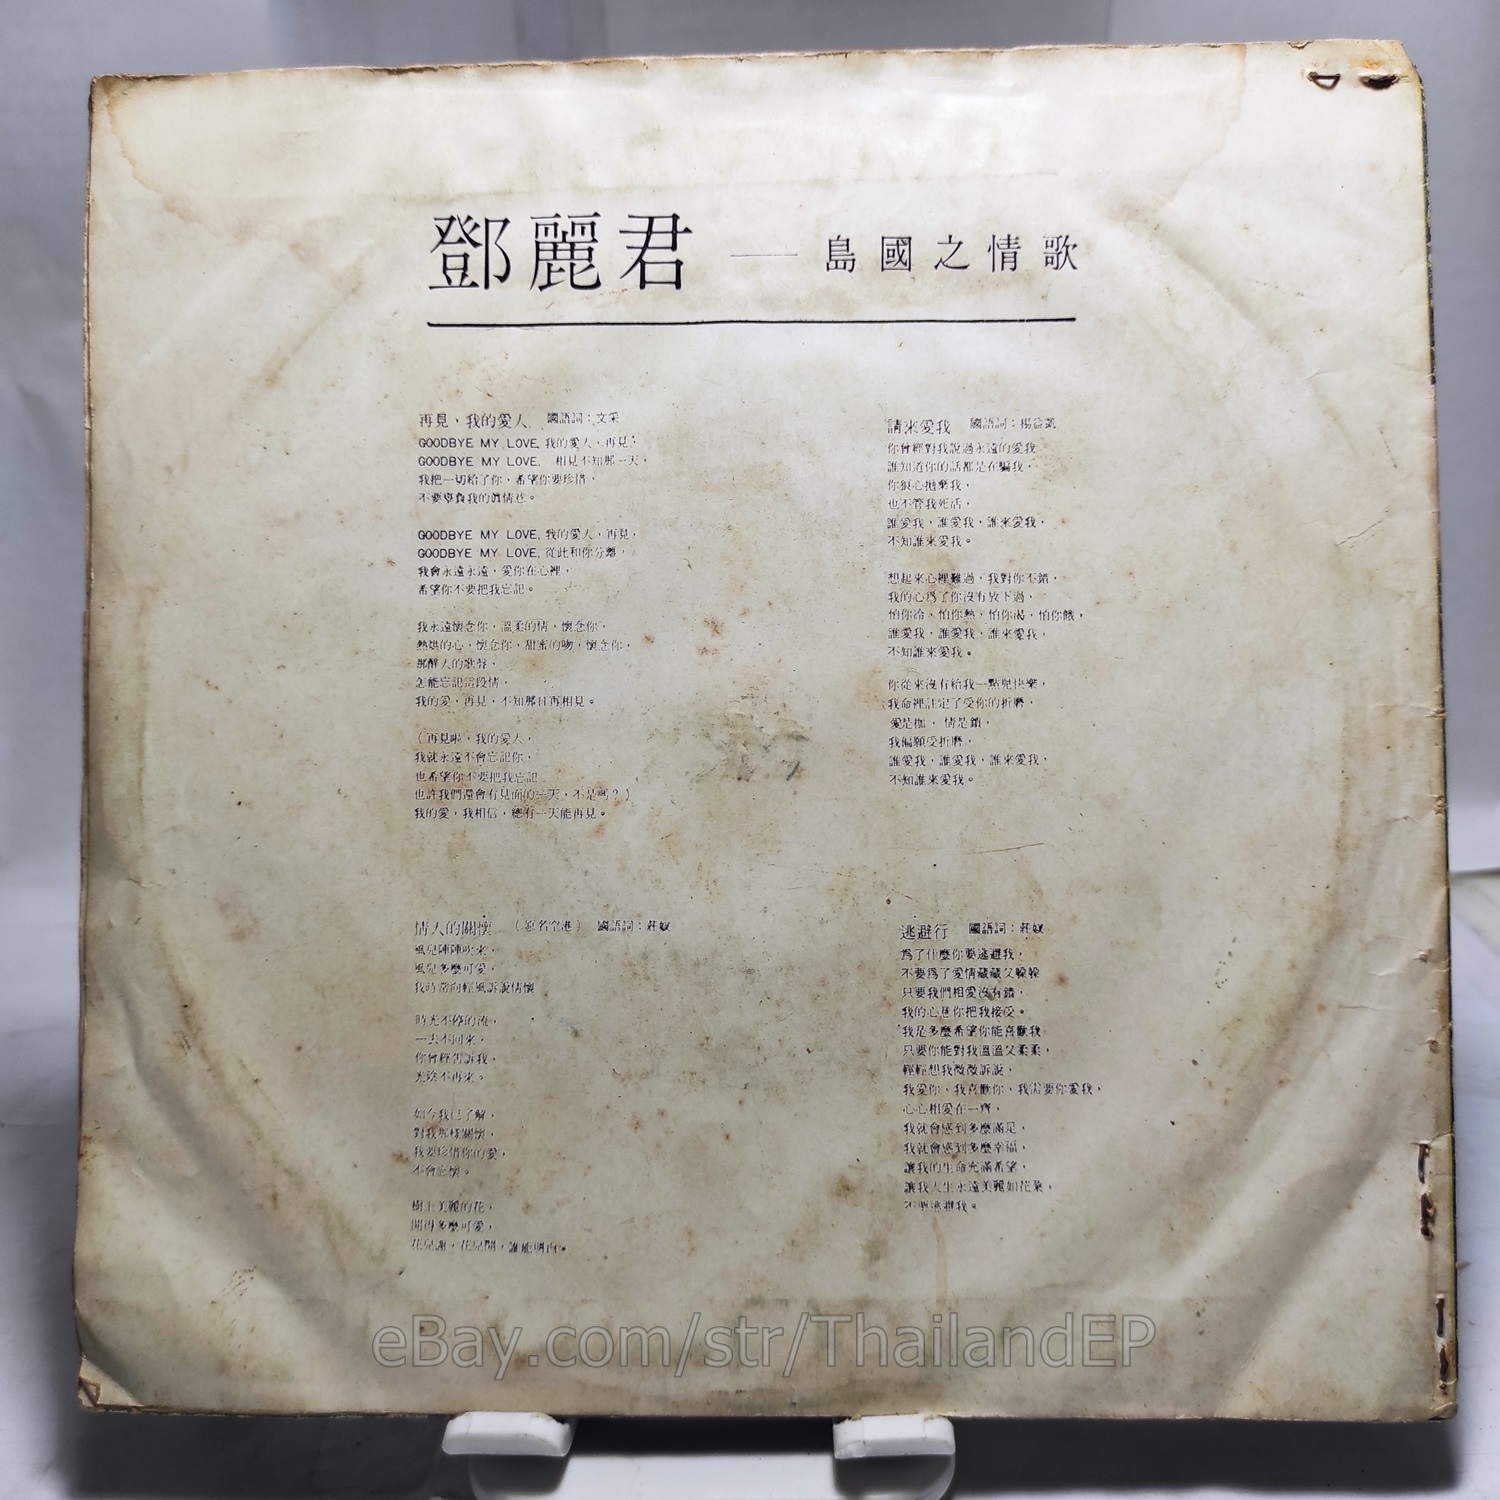 鄧麗君 — 島國之情歌
再見,我的愛人 國語詞:文采
GOODBYE MY LOVE, 我的愛人,再見,
GOODBYE MY LOVE, 相見不知那一天,
我把一切給了你,希望你要珍惜,
不要辜負我的眞情意。
GOODBYE MY LOVE, 我的愛人,再見,
GOODBYE MY LOVE, 從此和你分離,
我會永遠永遠,愛你在心裡,
希望你不要把我忘記。
我永遠懷念你,溫柔的情,懷念你,
熱烘的心,懷念你,甜蜜的吻,懷念你,
那醉人的歌聲,
怎能忘記這段情,
我的愛,再見,不知那日再相見。
(再見啦,我的愛人,
我就永遠不會忘記你,
也希望你不要把我忘記
也許我們還會有見面的一天,不是嗎?)
我的愛,我相信,總有一天能再見。
請來愛我 國語詞:楊益凱
你曾經對我說過永遠的愛我
誰知道你的話都是在騙我,
你狠心拋棄我,
也不管我死活,
誰愛我,誰愛我,誰來愛我,
不知誰來愛我。
想起來心裡難過,我對你不錯,
我的心爲了你沒有放下過,
怕你冷,怕你熱,怕你渴,怕你餓,
誰愛我,誰愛我,誰來愛我,
不知誰來愛我。
你從來沒有給我一點兒快樂,
我命裡註定了受你的折磨,
愛是枷,情是鎖,
我偏願受折磨,
誰愛我,誰愛我,誰來愛我,
不知誰來愛我。
情人的關懷 (原名空港) 國語詞:莊奴
風兒陣陣吹來,
風兒多麼可愛,
我時常向輕風訴說情懷
時光不停的流,
一去不回來,
你曾經告訴我,
光陰不再來。
如今我已了解,
對我那樣關懷,
我要珍惜你的愛,
不會忘懷。
樹上美麗的花,
開得多麼可愛,
花兒謝,花兒開,誰能明白。
逃避行 國語詞:莊奴
爲了什麼你要逃避我,
不要爲了愛情藏藏又躲躲
只要我們相愛沒有錯,
我的心意你把我接受。
我是多麼希望你能喜歡我
只要你能對我溫溫又柔柔,
輕輕想我微微訴說,
我愛你,我喜歡你,我需要你愛我,
心心相愛在一齊,
我就會感到多麼滿足,
我就會感到多麼幸福,
讓我的生命充滿希望,
讓我人生永遠美麗如花朵,
不要逃避我。
eBay.com/str/ThailandEP